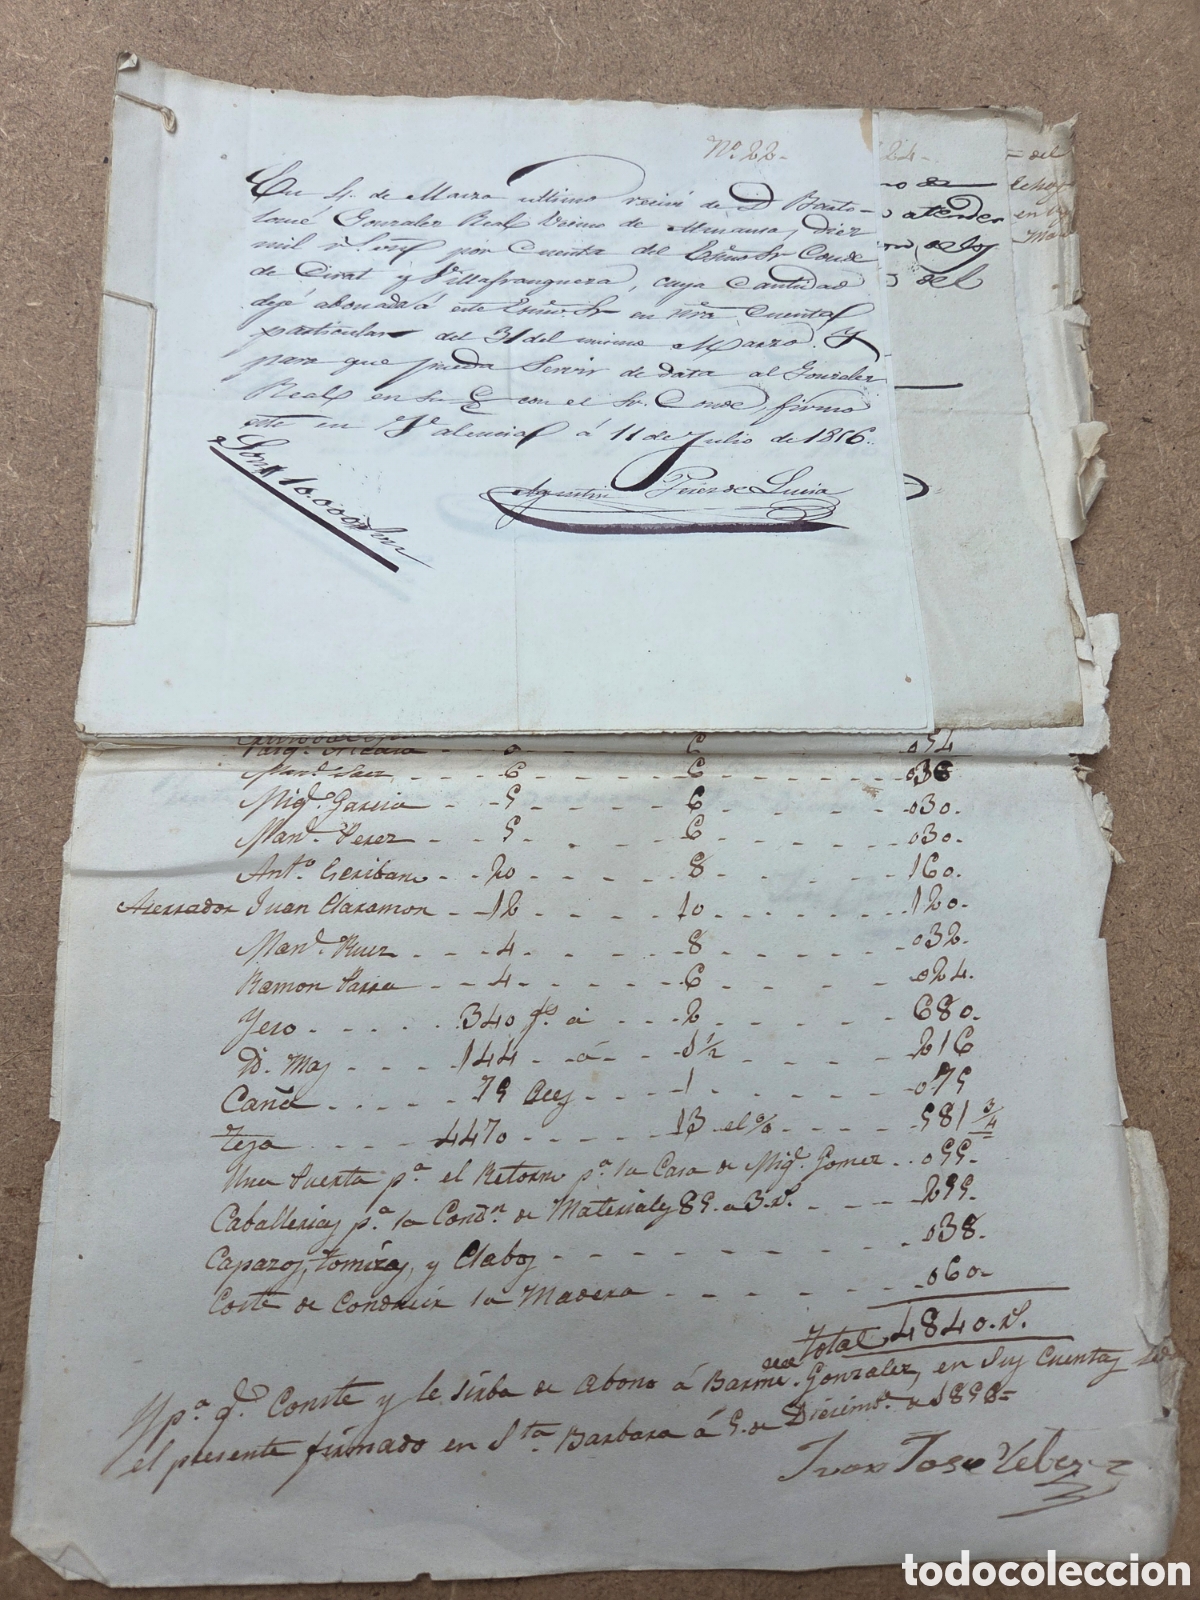 Nº 22-
En 4. de Marzo ultimo recivi de D Barto-
lomé Gonzalez Real Vecino de Dieź
mil por Cuenta del Exmo Sr Conde
de Cirat y Villafranqueza, cuya Cantidad
dejé abonada á este Exmo Sr en ntra Cuenta
particular del 31 del mismo Marzo. Y
para que pueda Servir de data al Gonzalez
Real en su con el Sr. Conde, firmo
este en Valencia á 11 de Julio de 1856.
Son 10.000
Agustin Perez de Lucia
24-
= del
atender
del
Man.l Saez - 6 - 6 - 036
Mig.l Garcia - 5 - 6 - 030.
Man.l Perez - 5 - 6 - 030.
Ant.o Escribano - 20 - 8 - 160.
Aserrador Juan Claramon - 12 - 10 - 120.
Man.l Ruiz - 4 - 8 - 032.
Ramon Parra - 4 - 6 - 024.
Yeso - 340 f.s a - 2 - 680.
Yd. Mas - 144 - á - 1 1/2 - 216
Caña - 75 aces - 1 - 075
Teja - 4470 - 13 el % - 581 3/4
Una Puerta p.a el Retorno p.a la Casa de Mig.l Gomez - 055.
Caballerias p.a la Cond.n de Materiales 85. a 3. r.s - 255.
Capazos, Tomiza, y Clabos - 038.
Coste de Conducir la Madera - 060-
Total 4840. r.s.
Y p.a q.e Conste y le sirba de abono á Barme. Gonzalez, en Sus Cuentas
el presente firmado en S.ta Barbara á 5. de Diciem.e de 1858=
Juan Jose Yebenz
todocoleccion